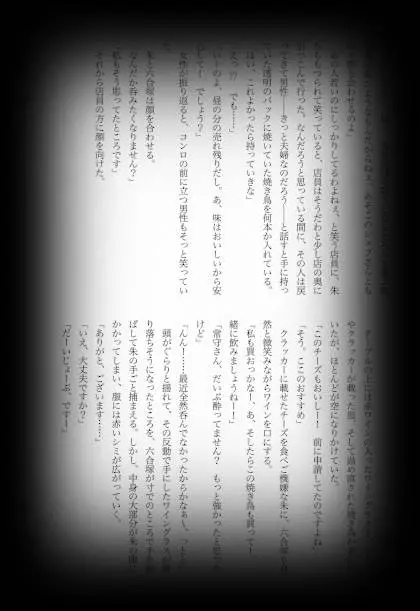 あの人若いのにしっかりしてるわよねぇ、と笑う店員に、朱
もつられて笑っていると、店員はそうだわと少し店の奥に
んで行った。なんだろうと思っている間に、その人は戻
ってきて男性――きっと夫婦なのだろう――と話すと手に持っ
ていた透明のパックに焼いていた焼き鳥を何本か入れている。
「はい、これよかったら持っていきな」
「えっ!? でも……」
「いいのよ、昼の分の売れ残りだし。あ、味はおいしいから安
して～ でしょう？」
女性が振り返ると、コンロの前に立つ男性もそっと笑ってい
た。
朱と六合塚は顔を合わせる。
「なんだか呑みたくなりません？」
「私もそう思ってたところです」
それから店員の方に顔を向けた。
テーブルの上には赤ワインが入ったワイングラス
やクラッカーが載った皿、そして温め直された焼き鳥が
いたが、ほとんどが空になりかけていた。
「このチーズもおいしー！ 前に申請してたのですよね
「そう。ここのおすすめ」
クラッカーに載せたチーズを食べご機嫌な朱に、六合塚
然と微笑みながらワインを口にする。
「私も買おっかなー、あ、そしたらこの焼き鳥も買って一
緒に飲みましょうねー！」
「常守さん、だいぶ酔ってません？ もっと強かったと思
けど」
「んん！……最近全然呑んでなかったからかなぁー、
頭がぐらりと揺れて、その反動で手にしたワイングラスが
り落ちそうになったところを、六合塚が寸でのところで手
ばして朱の手ごと捕まえる。しかし、中身の大部分が朱の服
かかってしまい、服には赤いシミが広がっていく。
「ありがと、ございます……」
「いえ、大丈夫ですか？」
「だーいじょーぶ ですー」